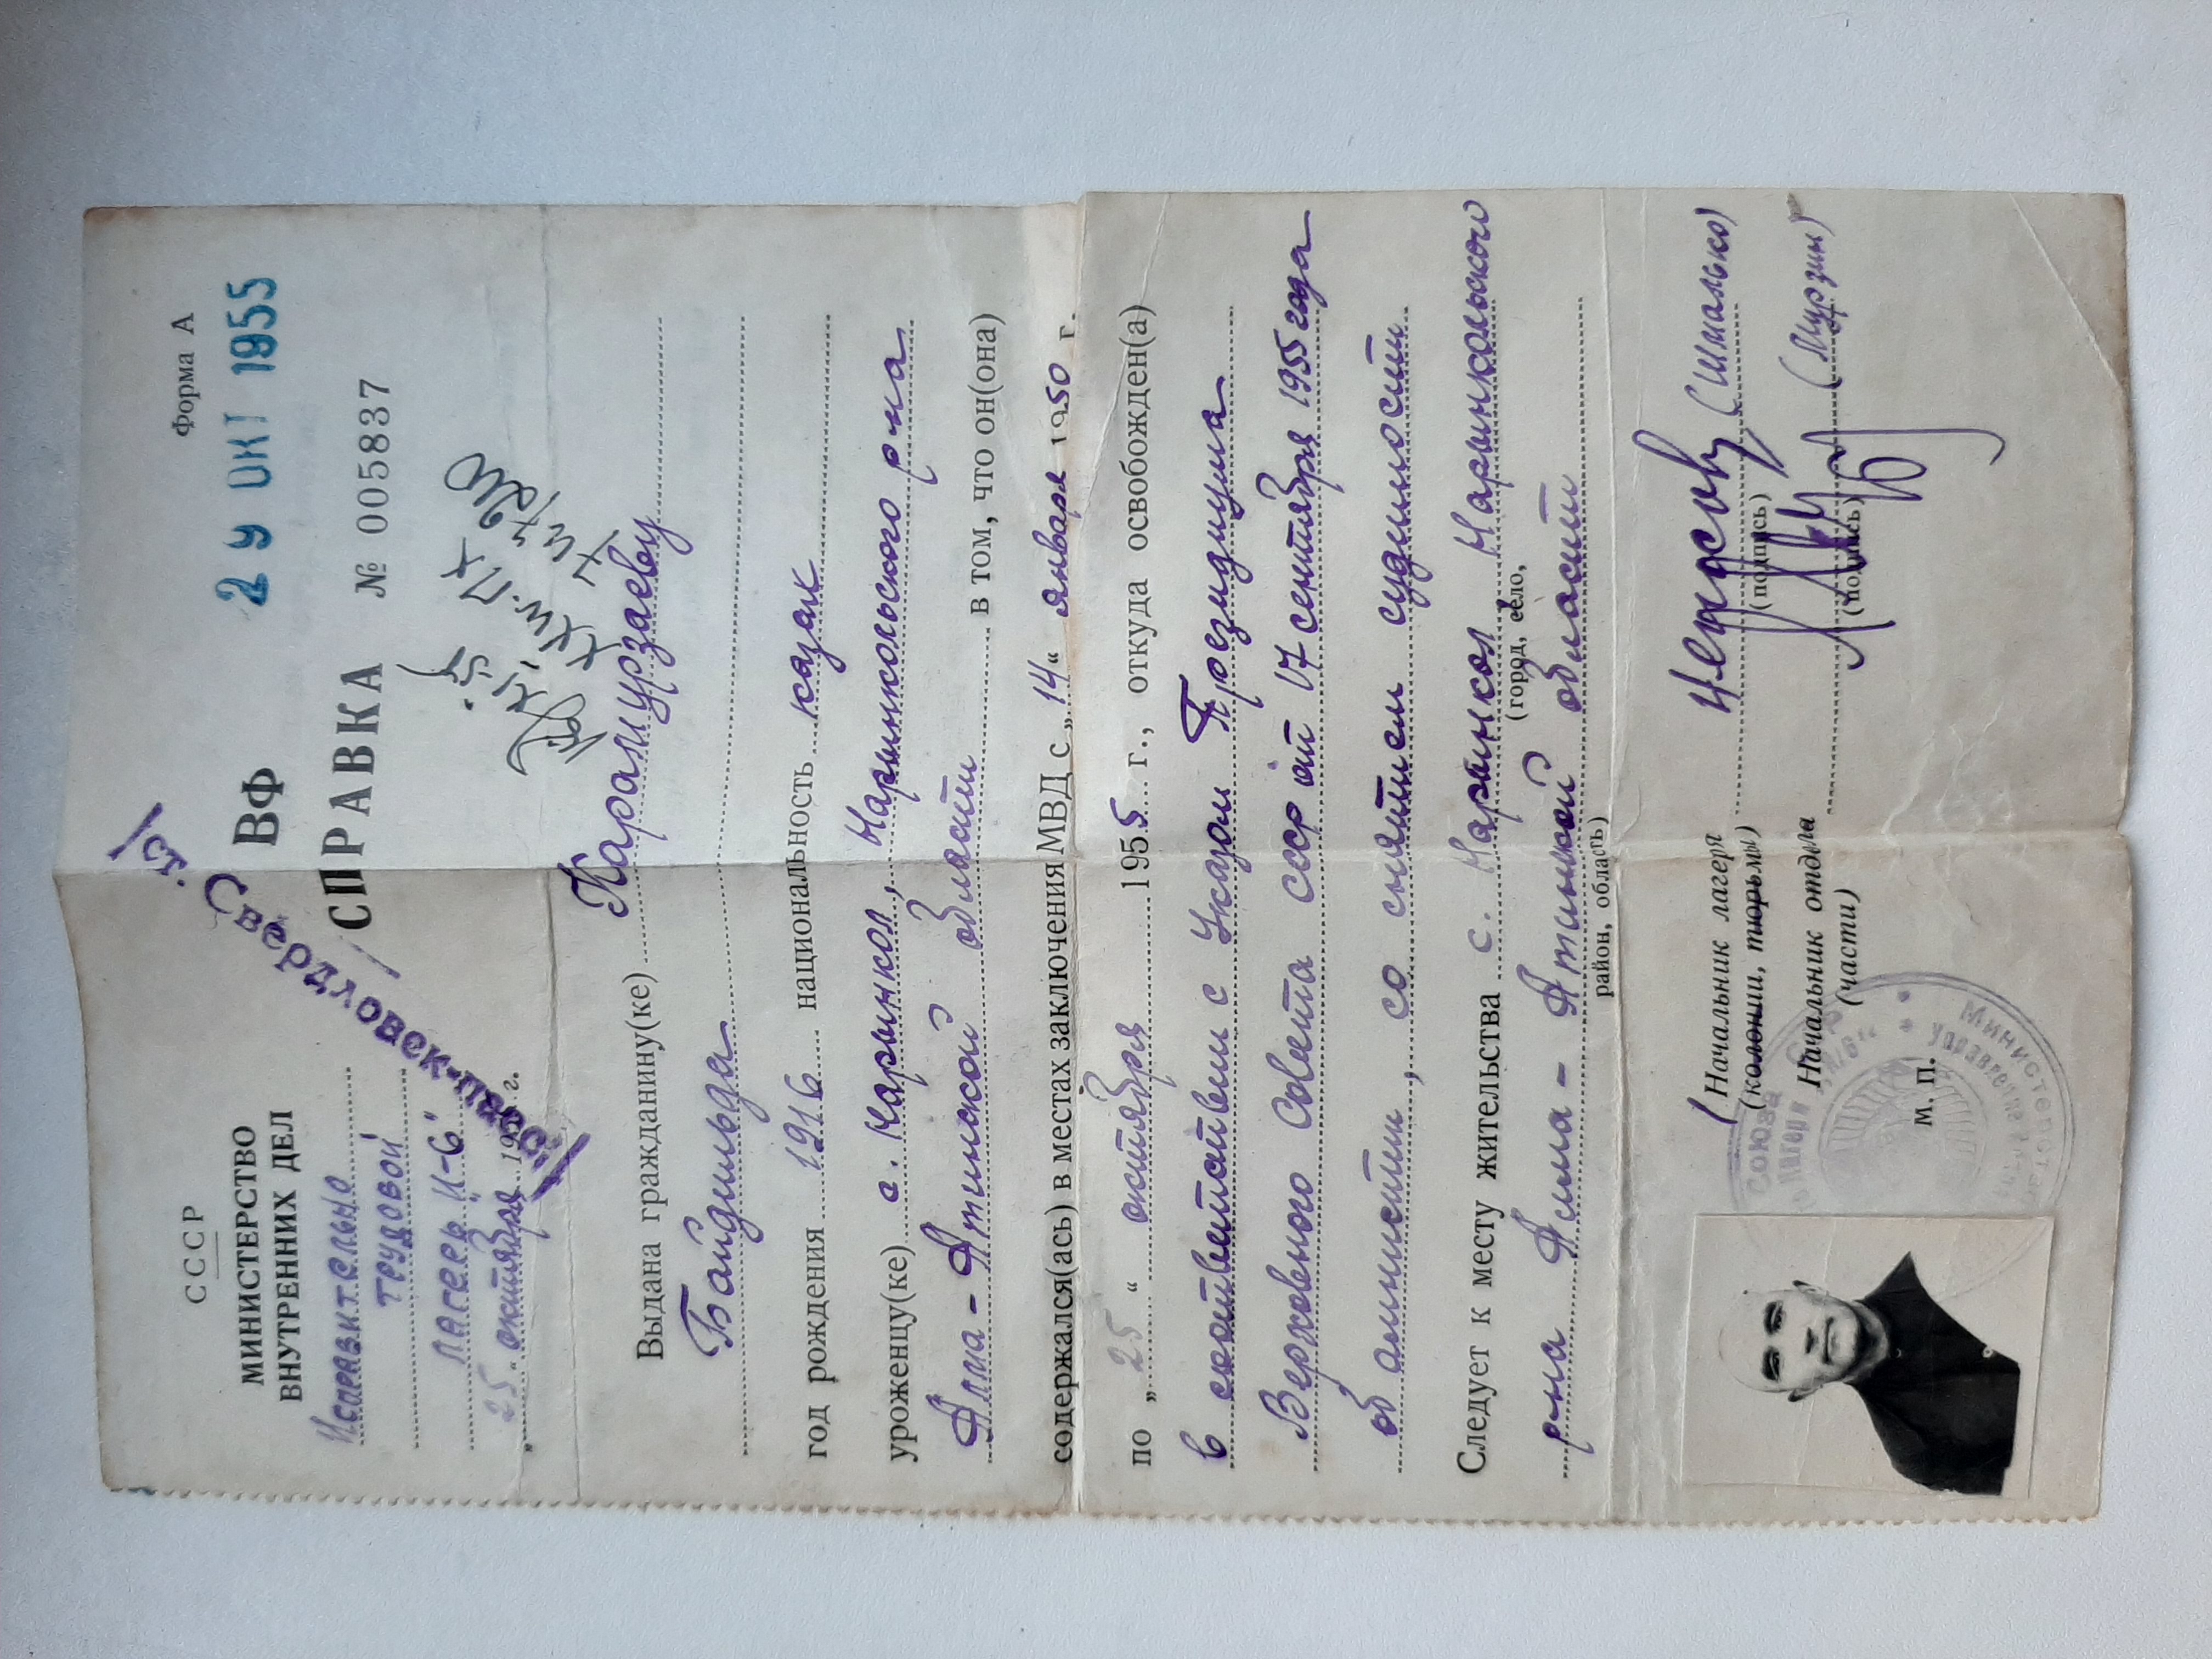 Форма А
СССР
МИНИСТЕРСТВО
ВНУТРЕННИХ ДЕЛ
Исправительно
трудовой
лагерь "И-6"
"25" октября 195 г.
Свердловск-пасс
29 ОКТ 1955
ВФ
СПРАВКА № 005837
Выдана гражданину(ке) Карамурзаеву
Байдильда
год рождения 1916 национальность казак
уроженцу(ке) с. Нарынкол, Нарынкольского р-на
Алма-Атинской области в том, что он(она)
содержался(ась) в местах заключения МВД с „14“ января 1950 г.
по „25“ октября 1955 г., откуда освобожден(а)
в соответствии с Указом Президиума
Верховного Совета СССР от 17 сентября 1955 года
об амнистии, со снятием судимости
Следует к месту жительства с. Нарынкол Нарынкольского
(город, село,
р-на Алма-Атинской области
район, область)
Начальник лагеря
(колонии, тюрьмы)
(подпись)
Начальник отдела (Мурзин)
(части)
(подпись)
М. П.
Союза
Министерст
управлени